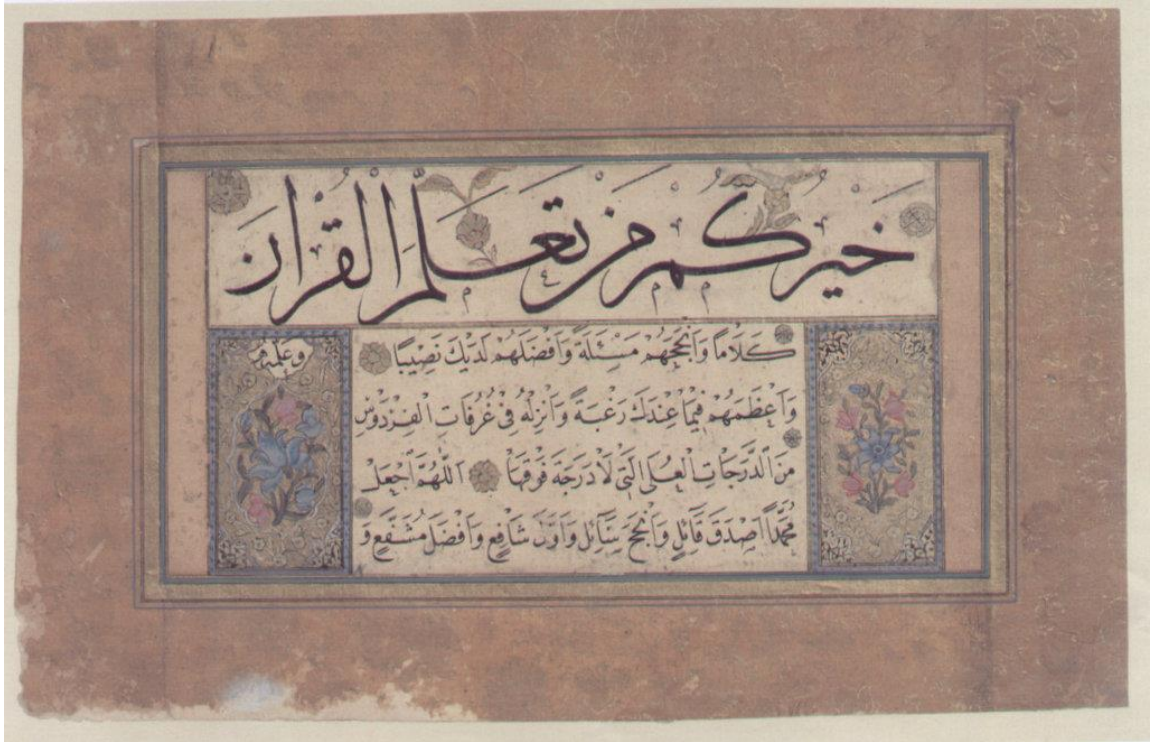 خَيْرُكُمْ مَنْ تَعَلَّمَ الْقُرْاٰنَ
وعلمه
كَلَامًا وَاَنْجَحَهُمْ مَسْئَلَةً وَاَفْضَلَهُمْ لَدَيْكَ نَصِيبًا
وَاَعْظَمَهُمْ فِيمَا عِنْدَكَ رَغْبَةً وَاَنْزِلْهُ فِى غُرُفَاتِ الْفِرْدَوْسِ
مِنَ الدَّرَجَاتِ الْعُلَى الَّتِى لَا دَرَجَةَ فَوْقَهَا اَللّٰهُمَّ اجْعَلْ
مُحَمَّدًا اَصْدَقَ قَائِلٍ وَاَنْجَحَ سَائِلٍ وَاَوَّلَ شَافِعٍ وَاَفْضَلَ مُشَفَّعٍ وَ